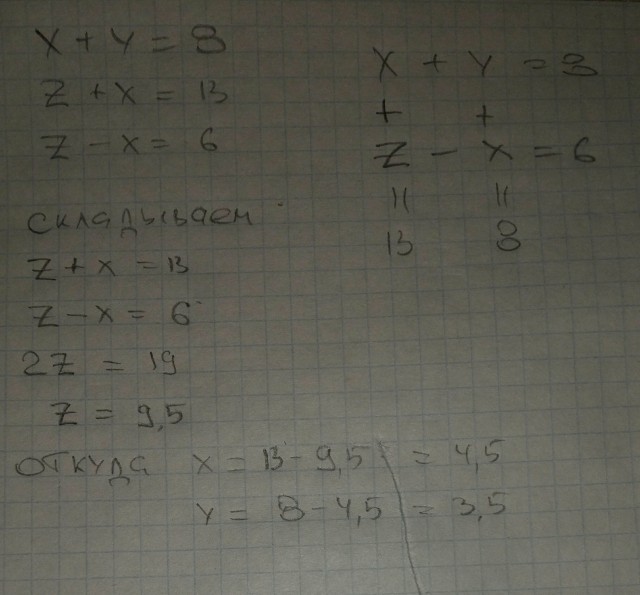 X + Y = 8
Z + X = 13
Z - X = 6
складываем
Z + X = 13
Z - X = 6
2Z = 19
Z = 9,5
откуда X = 13 - 9,5 = 4,5
Y = 8 - 4,5 = 3,5
X + Y = 8
+ +
Z - X = 6
|| ||
13 8